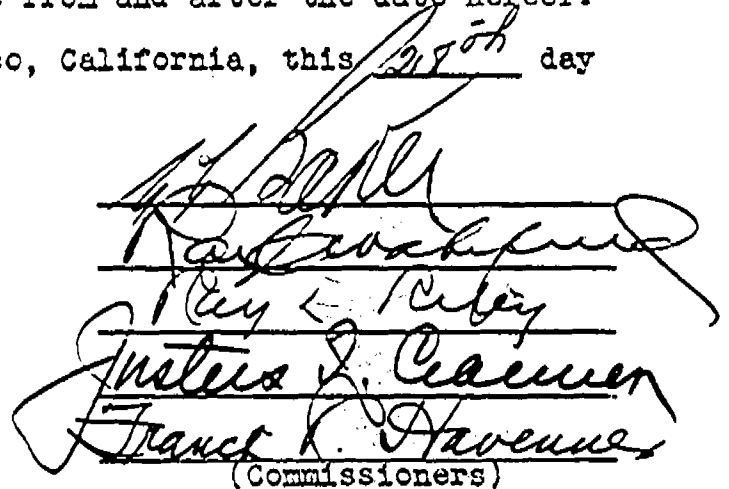 from and after the date hereof.
co, California, this 28th day
Ray L. Riley
Justus F. Craemer
Franck R. Havenner
(Commissioners)